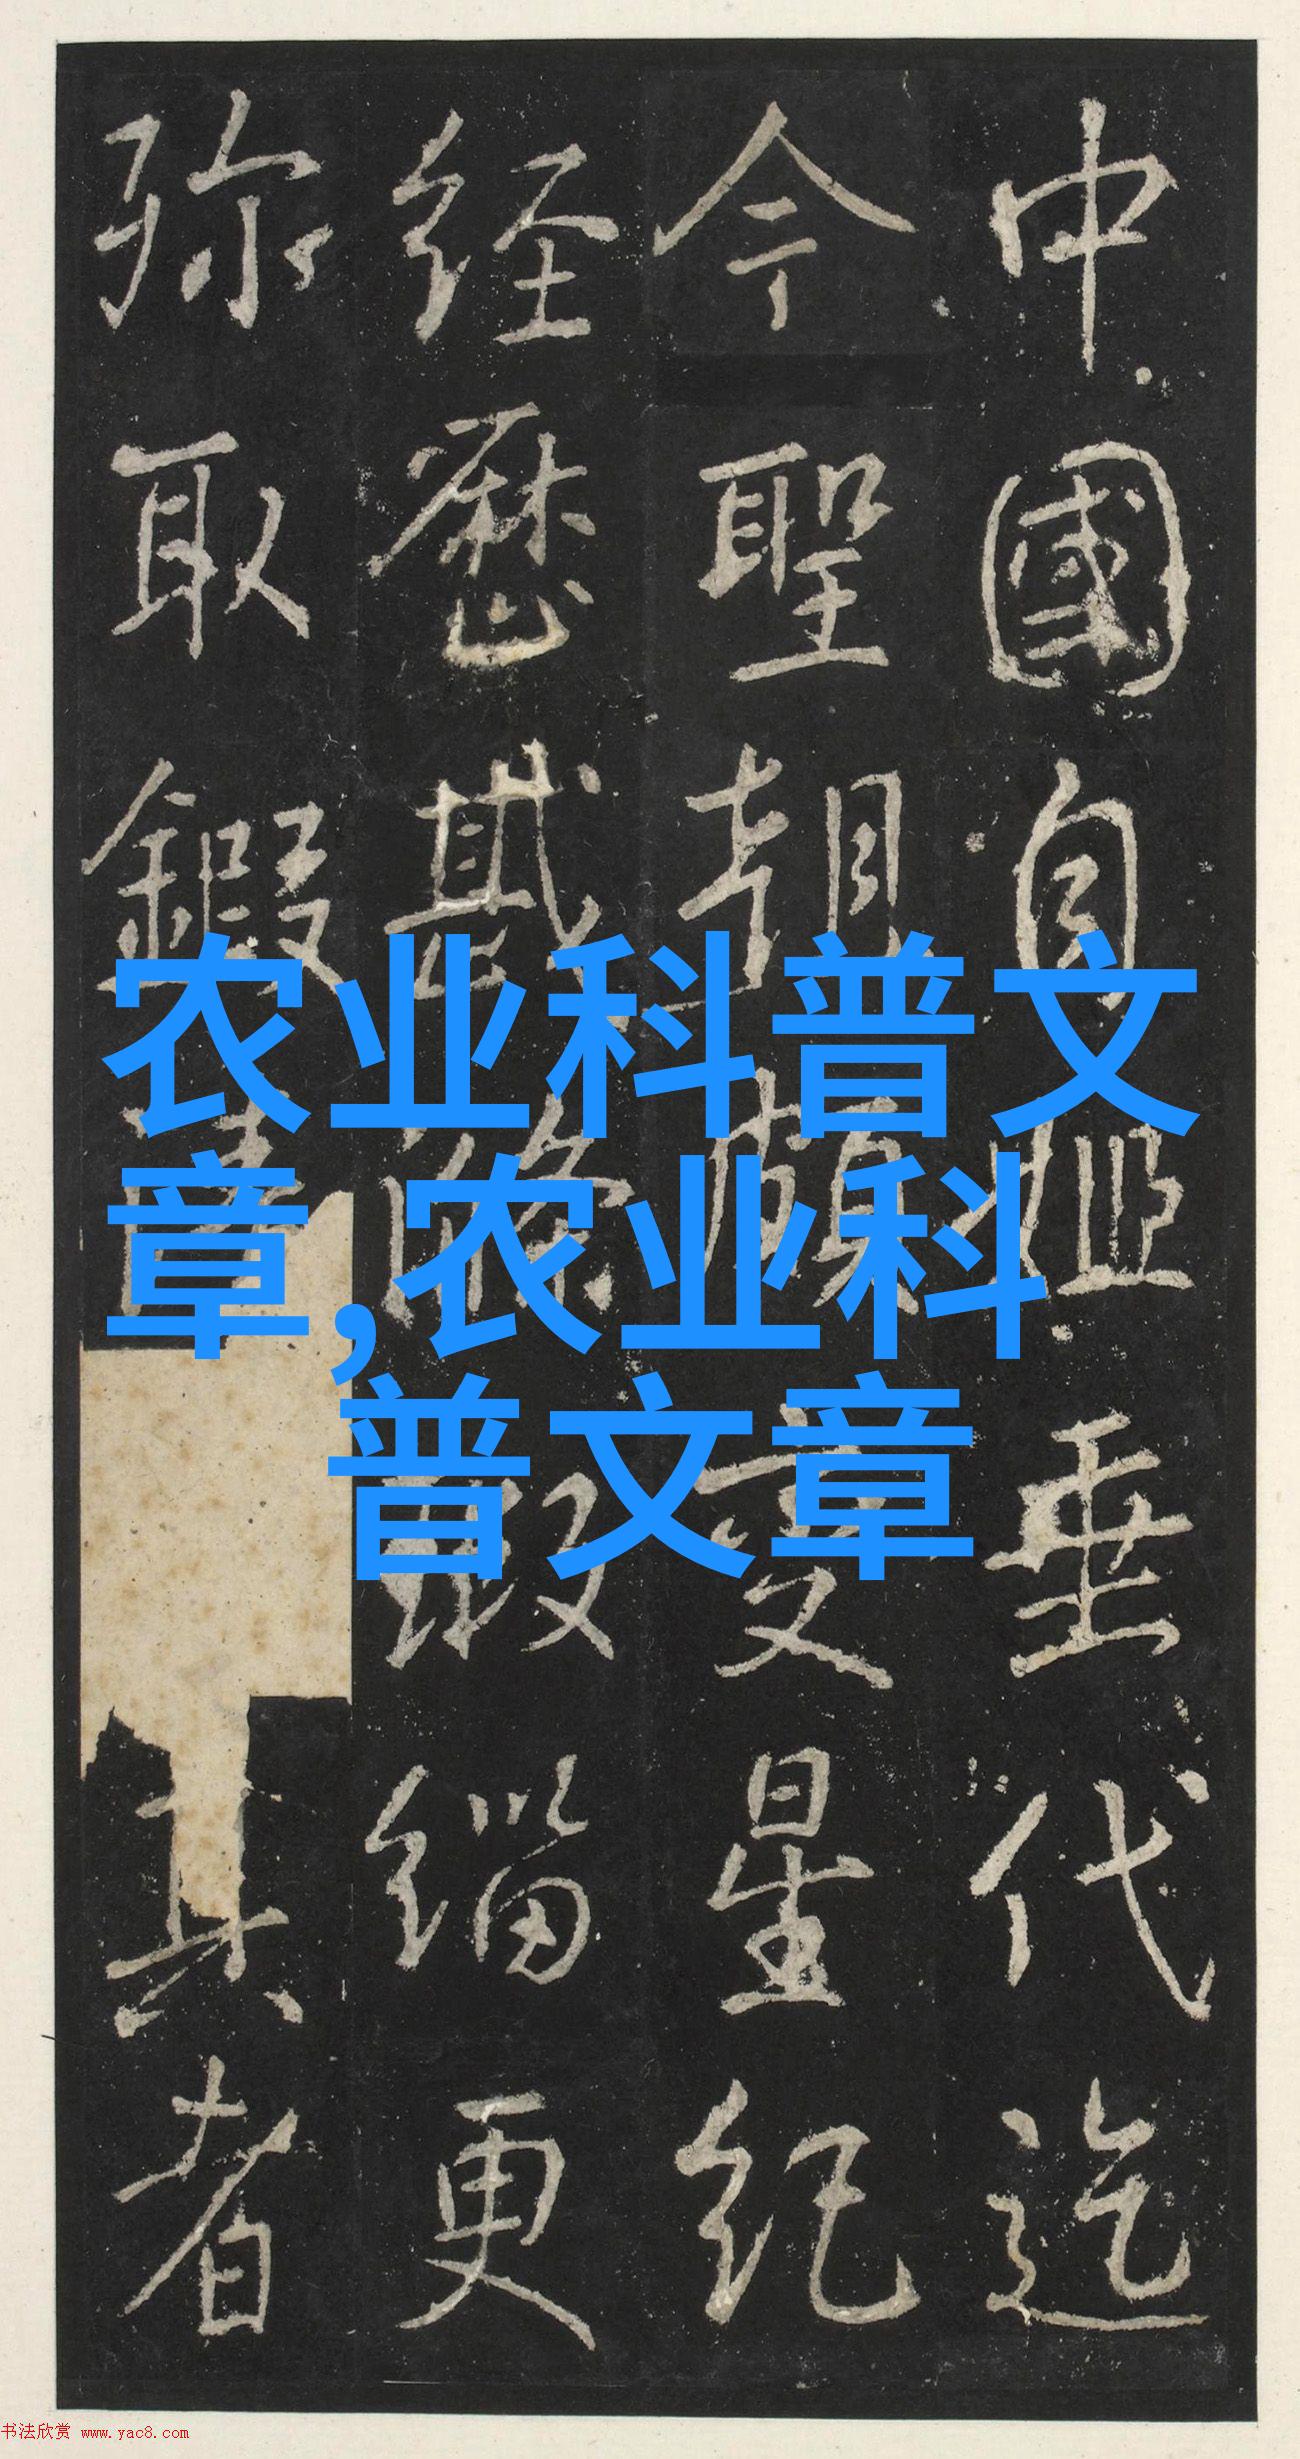 中國自垂代迄
今聖朝頻變星紀
经歷緇更
弥取鍛真者
农业科普文
章,农业科
普文章
书法欣赏 www.yac8.com